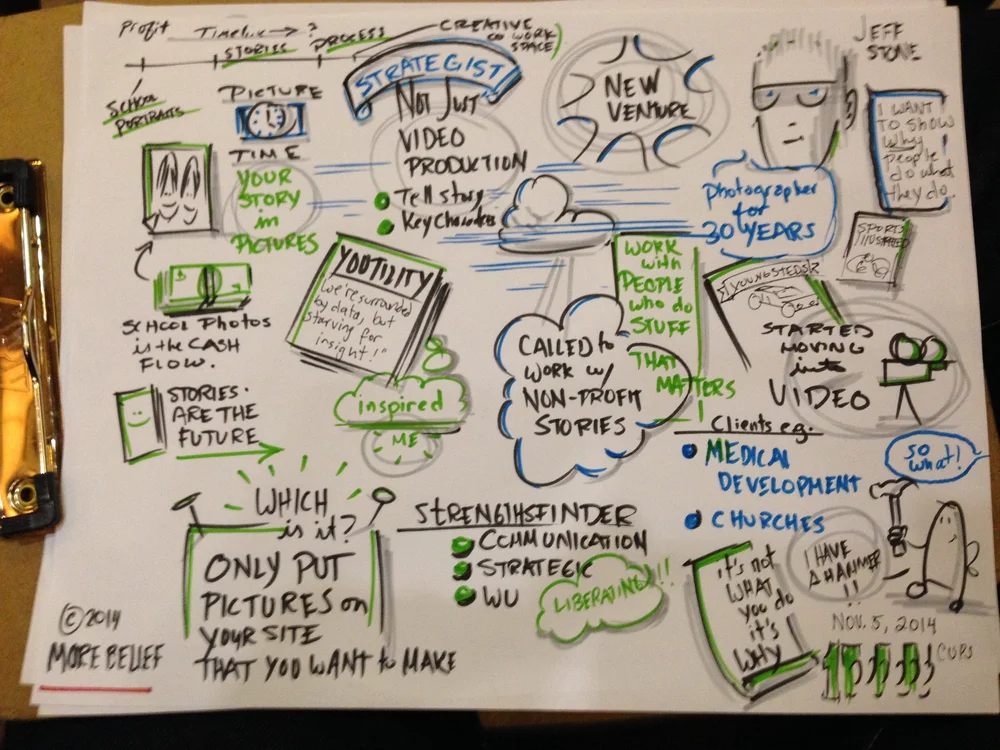 Profit
Timeline → ?
STORIES
PROCESS
CREATIVE
CO WORK
SPACE
SCHOOL
PORTRAITS
PICTURE
TIME
YOUR
STORY
in
PICTURES
STRATEGIST
NOT JUST
VIDEO
PRODUCTION
Tell story
Key Characters
NEW
VENTURE
JEFF
STONE
I WANT
TO SHOW
Why
people
do what
they do.
photographer
for
30 YEARS
SPORTS
ILLUSTRATED
SCHOOL PHOTOS
is the CASH
FLOW.
YOUTILITY
"We're surrounded
by data, but
starving for
insight!"
inspired
ME
STORIES
ARE THE
FUTURE
WORK
with
PEOPLE
who do
STUFF
THAT
MATTERS
CALLED to
WORK w/
NON-PROFIT
STORIES
STARTED
MOVING
into
VIDEO
Clients e.g.
MEDICAL
DEVELOPMENT
CHURCHES
SO
what!
I HAVE
A HAMMER
!!
WHICH
is it?
ONLY PUT
PICTURES on
YOUR SITE
THAT YOU WANT to MAKE
STRENGTHSFINDER
COMMUNICATION
STRATEGIC
WU
LIBERATING!!!
it's not
WHAT
you do
it's
WHY
NOV. 5, 2014
CUPS
© 2014
MORE BELIEF